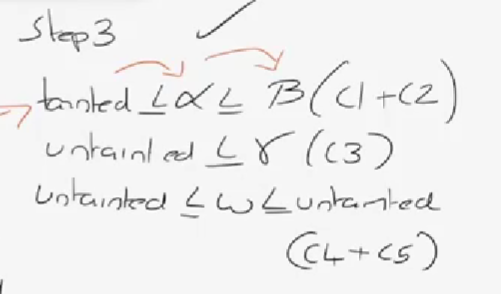 Step3
tainted ≤ α ≤ B (C1+C2)
untainted ≤ γ (C3)
untainted ≤ ω ≤ untainted
(C4+C5)